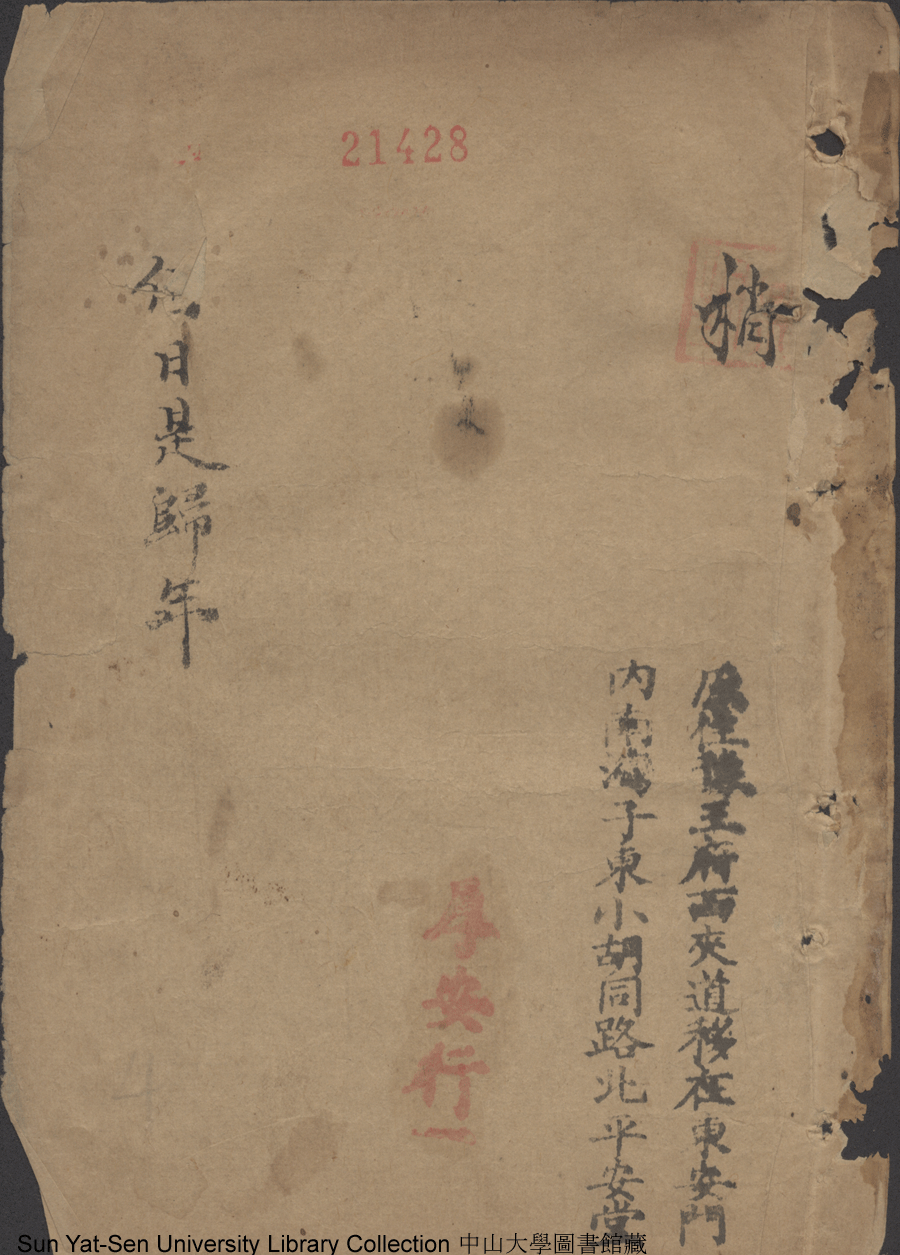 21428
梢
原住豫王府西夾道移在東安門
內南灣子東小胡同路北平安堂
安行
日是歸年
Sun Yat-Sen University Library Collection 中山大學圖書館藏